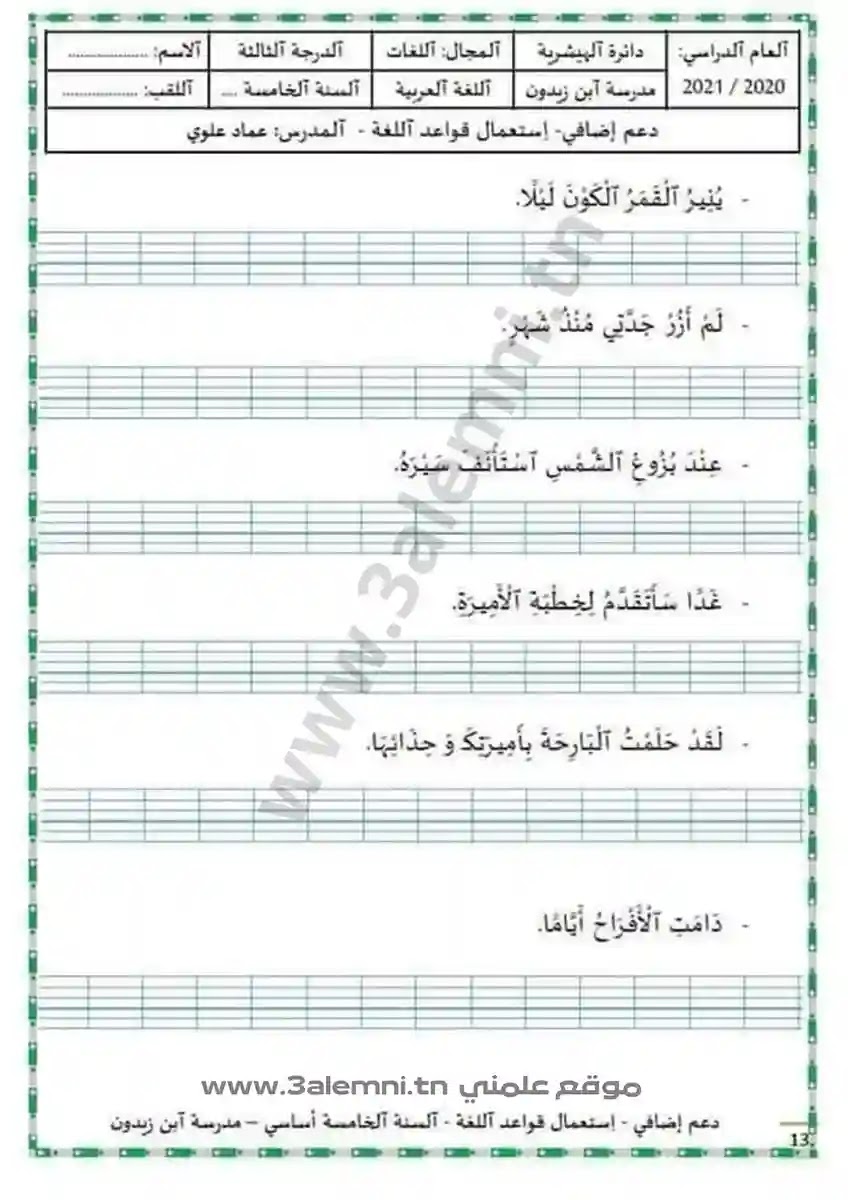 العام الدراسي: 2020 / 2021
دائرة الهيشرية
المجال: اللغات
الدرجة الثالثة
الاسم: ..................
مدرسة آبن زيدون
اللغة العربية
السنة الخامسة ....
اللقب: .................
دعم إضافي- إستعمال قواعد اللغة - المدرس: عماد علوي
- يُنِيرُ ٱلْقَمَرُ ٱلْكَوْنَ لَيْلًا.
- لَمْ أَزُرْ جَدَّتِي مُنْذُ شَهْرٍ.
- عِنْدَ بُزُوغِ ٱلشَّمْسِ ٱسْتَأْنَفَ سَيْرَهُ.
- غَدًا سَأَتَقَدَّمُ لِخِطْبَةِ ٱلْأَمِيرَةِ.
- لَقَدْ حَلَمْتُ ٱلْبَارِحَةَ بِأَمِيرَتِكَ وَ حِذَائِهَا.
- دَامَتِ ٱلْأَفْرَاحُ أَيَّامًا.
www.3alemni.tn
موقع علمني www.3alemni.tn
دعم إضافي - إستعمال قواعد اللغة - السنة الخامسة أساسي – مدرسة آبن زيدون
13